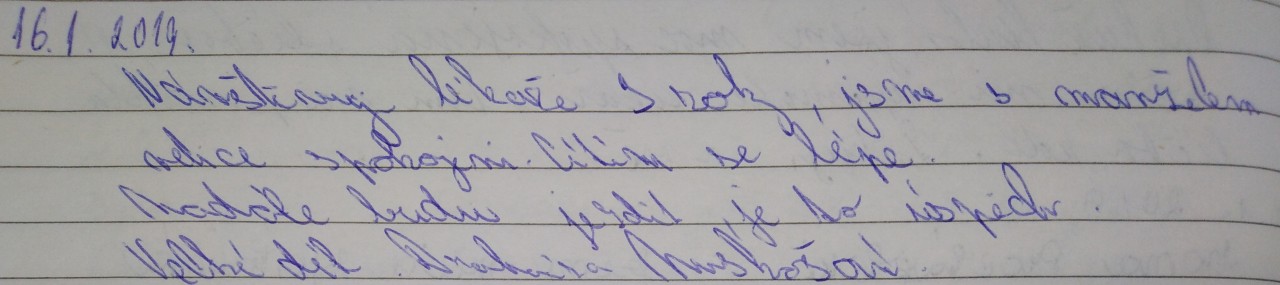 16.1.2019.
Návštěvuji lékaře 3 roky, jsme s manželem
velice spokojeni. Cítím se lépe.
Nadále budu jezdit, je to úspěch.
Velké dík.